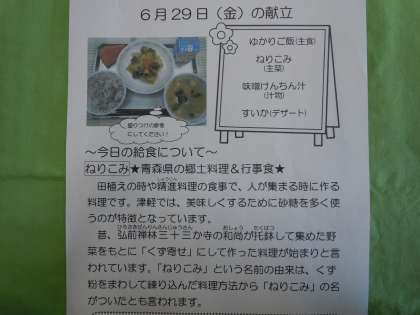 ６月２９日（金）の献立
ゆかりご飯(主食)
ねりこみ
(主菜)
味噌けんちん汁
(汁物)
すいか(デザート)
盛りつけの参考
にしてください！
～今日の給食について～
ねりこみ★青森県の郷土料理＆行事食★
田植えの時や精進料理の食事で、人が集まる時に作る
料理です。津軽では、美味しくするために砂糖を多く使
うのが特徴となっています。
昔、弘前禅林三十三か寺の和尚が托鉢して集めた野
菜をもとに「くず寄せ」にして作った料理が始まりと言
われています。「ねりこみ」という名前の由来は、くず
粉をまわして練り込んだ料理方法から「ねりこみ」の名
がついたとも言われます。